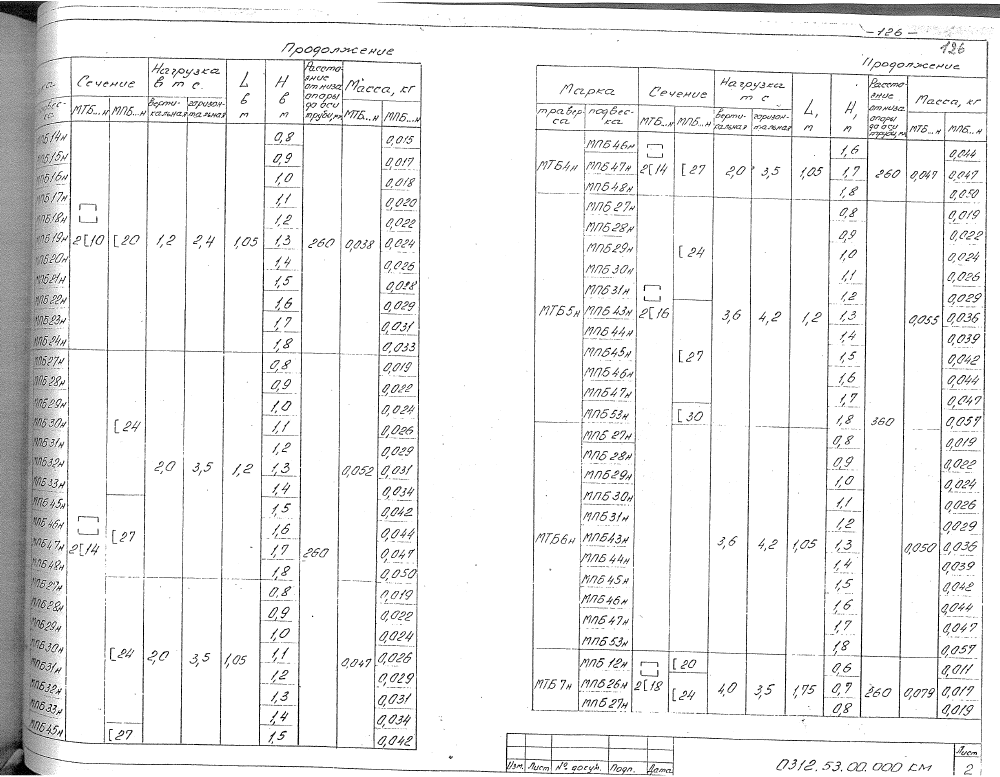 - 126 -
126
Продолжение
Сечение | Нагрузка в т с. | L в т | Н в т | Расстояние от низа опоры до оси трубы, мм | Масса, кг
МТБ...н | МПБ...н | вертикальная | горизонтальная | МТБ...н | МПБ...н
МПБ14н 0,8 0,015
МПБ15н 0,9 0,017
МПБ16н 1,0 0,018
МПБ17н 1,1 0,020
МПБ18н 1,2 0,022
МПБ19н 2[10 [20 1,2 2,4 1,05 1,3 260 0,038 0,024
МПБ20н 1,4 0,026
МПБ21н 1,5 0,028
МПБ22н 1,6 0,029
МПБ23н 1,7 0,031
МПБ24н 1,8 0,033
МПБ27н 0,8 0,019
МПБ28н 0,9 0,022
МПБ29н 1,0 0,024
МПБ30н [24 1,1 0,026
МПБ31н 1,2 0,029
МПБ32н 2,0 3,5 1,2 1,3 0,052 0,031
МПБ33н 1,4 0,034
МПБ45н 1,5 0,042
МПБ46н [27 1,6 0,044
МПБ47н 2[14 1,7 260 0,047
МПБ48н 1,8 0,050
МПБ27н 0,8 0,019
МПБ28н 0,9 0,022
МПБ29н 1,0 0,024
МПБ30н [24 2,0 3,5 1,05 1,1 0,047 0,026
МПБ31н 1,2 0,029
МПБ32н 1,3 0,031
МПБ33н 1,4 0,034
МПБ45н [27 1,5 0,042
Продолжение
Марка | Сечение | Нагрузка т с | L, т | Н, т | Расстояние от низа опоры до оси трубы, мм | Масса, кг
траверса | подвеска | МТБ...н | МПБ...н | вертикальная | горизонтальная | МТБ...н | МПБ...н
МПБ46н 1,6 0,044
МТБ4н МПБ47н 2[14 [27 2,0 3,5 1,05 1,7 260 0,047 0,047
МПБ48н 1,8 0,050
МПБ27н 0,8 0,019
МПБ28н 0,9 0,022
МПБ29н [24 1,0 0,024
МПБ30н 1,1 0,026
МПБ31н 1,2 0,029
МТБ5н МПБ43н 2[16 3,6 4,2 1,2 1,3 0,055 0,036
МПБ44н 1,4 0,039
МПБ45н [27 1,5 0,042
МПБ46н 1,6 0,044
МПБ47н 1,7 0,047
МПБ53н [30 1,8 360 0,057
МПБ27н 0,8 0,019
МПБ28н 0,9 0,022
МПБ29н 1,0 0,024
МПБ30н 1,1 0,026
МПБ31н 1,2 0,029
МТБ6н МПБ43н 3,6 4,2 1,05 1,3 0,050 0,036
МПБ44н 1,4 0,039
МПБ45н 1,5 0,042
МПБ46н 1,6 0,044
МПБ47н 1,7 0,047
МПБ53н 1,8 0,057
МПБ12н [20 0,6 0,011
МТБ7н МПБ26н 2[18 [24 4,0 3,5 1,75 0,7 260 0,079 0,017
МПБ27н 0,8 0,019
Изм. Лист № докум. Подп. Дата
0312.53.00.000 КМ
Лист
2